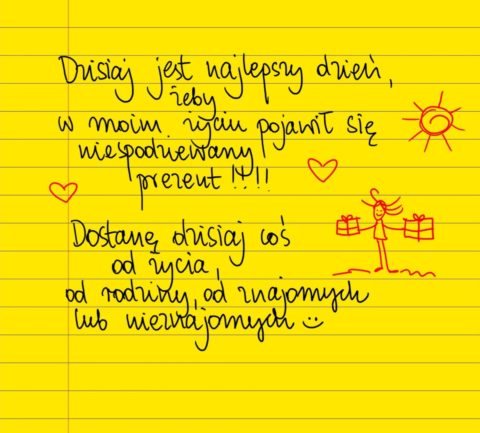 Dzisiaj jest najlepszy dzień,
żeby
w moim życiu pojawił się
niespodziewany
prezent !!!!
Dostanę dzisiaj coś
od życia,
od rodziny, od znajomych
lub nieznajomych :)